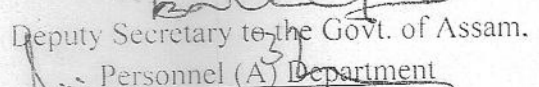 Deputy Secretary to the Govt. of Assam.
Personnel (A) Department